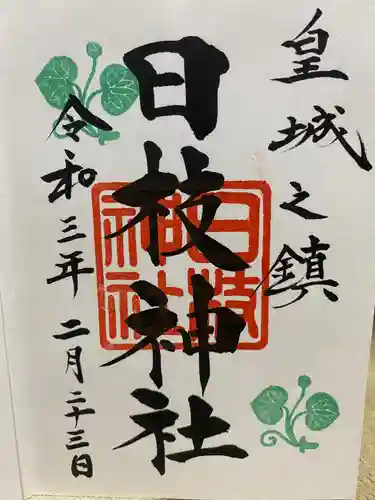 皇城之鎮
日枝神社
日枝神社
令和三年 二月二十三日